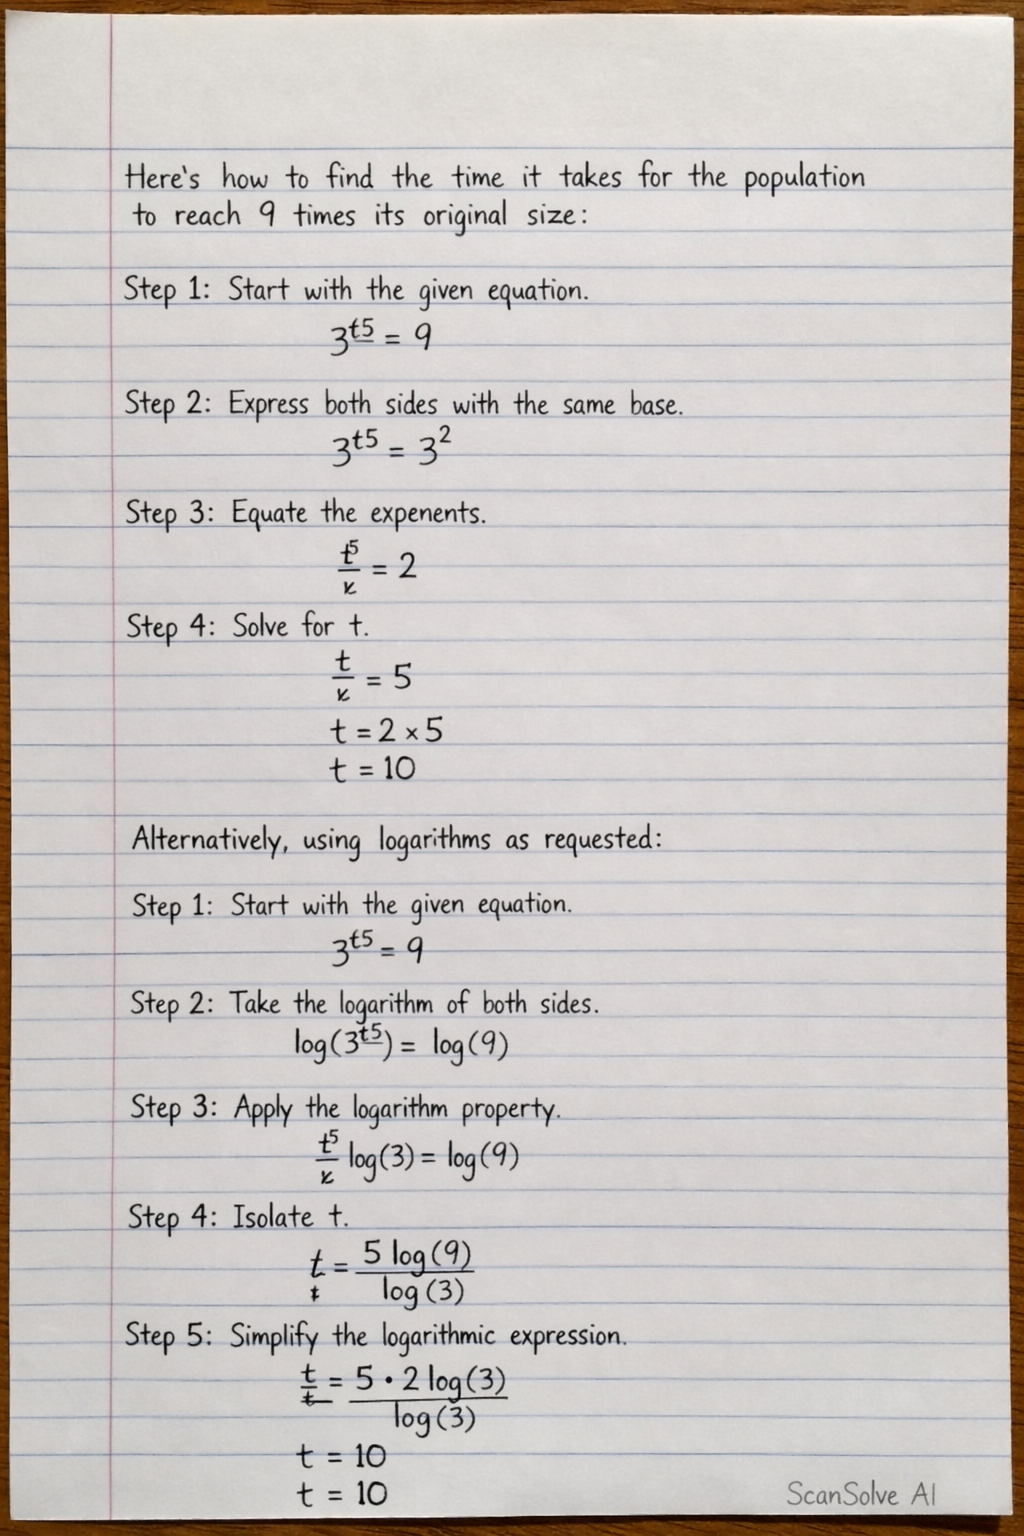 Here's how to find the time it takes for the population
to reach 9 times its original size:
Step 1: Start with the given equation.
3^t5 = 9
Step 2: Express both sides with the same base.
3^t5 = 3^2
Step 3: Equate the expenents.
t^5/x = 2
Step 4: Solve for t.
t/x = 5
t = 2 × 5
t = 10
Alternatively, using logarithms as requested:
Step 1: Start with the given equation.
3^t5 = 9
Step 2: Take the logarithm of both sides.
log(3^t5) = log(9)
Step 3: Apply the logarithm property.
t^5/x log(3) = log(9)
Step 4: Isolate t.
t = 5 log(9)
log(3)
Step 5: Simplify the logarithmic expression.
t/t = 5 · 2 log(3)
log(3)
t = 10
t = 10
ScanSolve AI